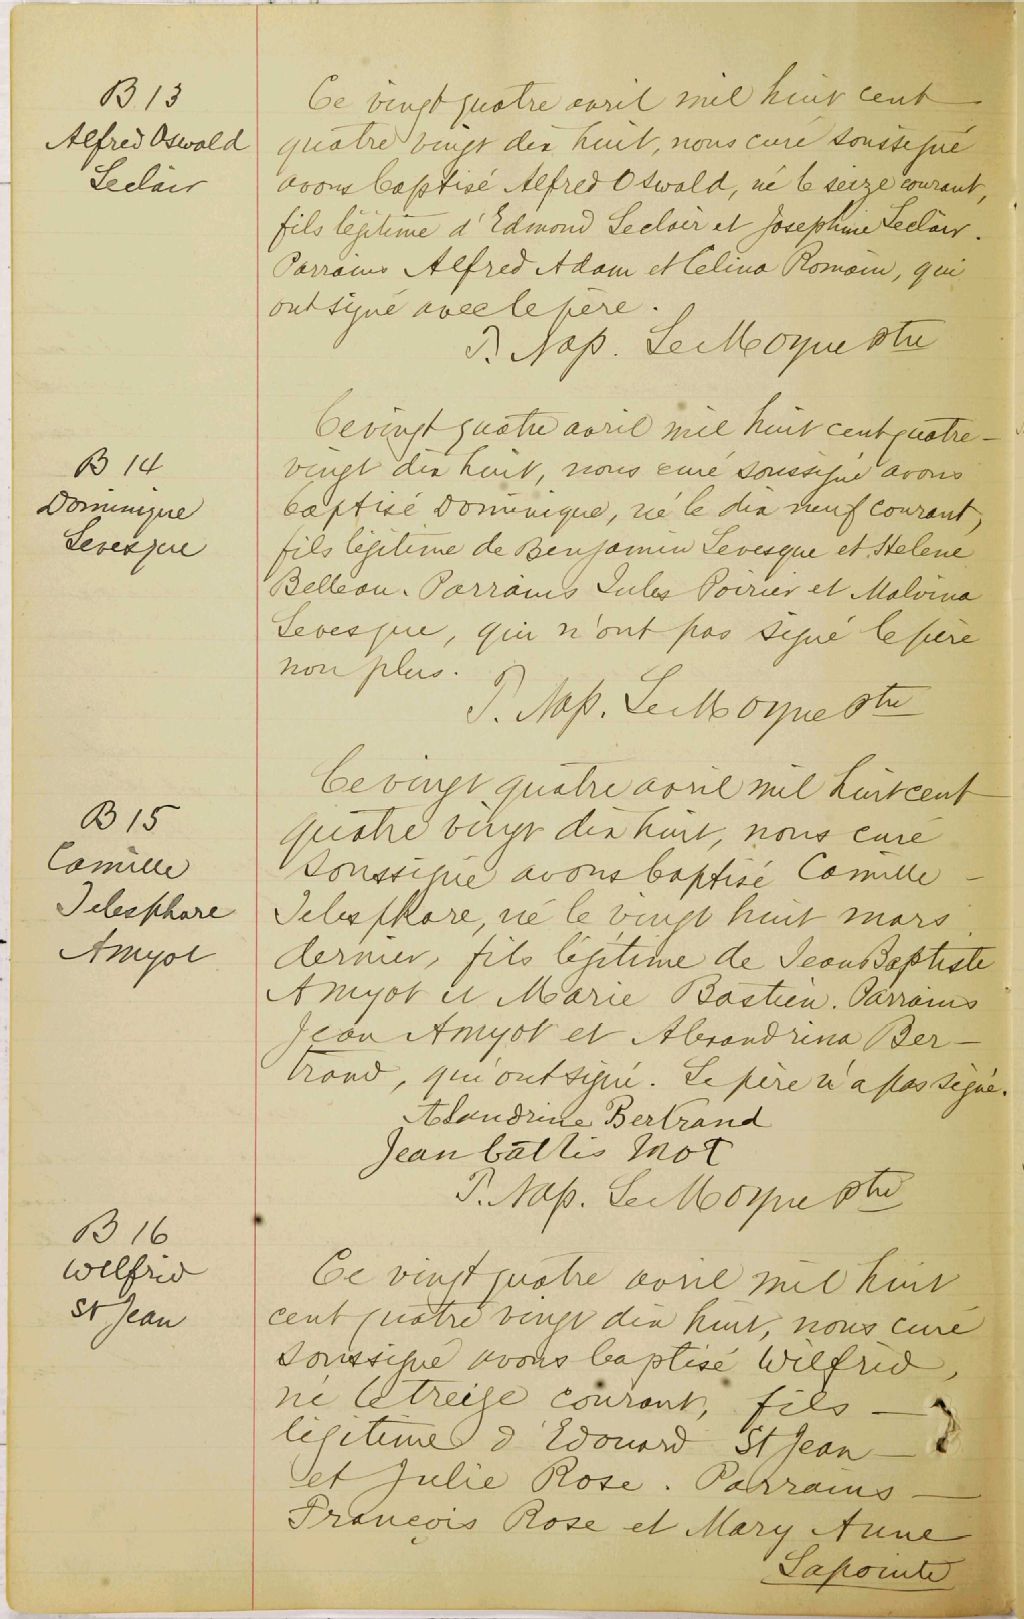 B 13
Alfred Oswald
Leclair
Ce vingt quatre avril mil huit cent
quatre vingt dix huit, nous curé soussigné
avons baptisé Alfred Oswald, né le seize courant,
fils légitime d'Edmond Leclair et Josephine Leclair.
Parrains Alfred Adam et Celina Romain, qui
ont signé avec le père.
P. Nap. LeMoyne Ptre
B 14
Dominique
Levesque
Ce vingt quatre avril mil huit cent quatre-
vingt dix huit, nous curé soussigné avons
baptisé Dominique, né le dix neuf courant,
fils légitime de Benjamin Levesque et Helene
Belleau. Parrains Jules Poirier et Malvina
Levesque, qui n'ont pas signé le père
non plus.
P. Nap. LeMoyne Ptre
B 15
Camille
Telesphore
Amyot
Ce vingt quatre avril mil huit cent
quatre vingt dix huit, nous curé
soussigné avons baptisé Camille -
Telesphore, né le vingt huit mars
dernier, fils légitime de Jean Baptiste
Amyot et Marie Bastien. Parrains
Jean Amyot et Alexandrina Ber-
trand, qui ont signé. Le père n'a pas signé.
Alandrine Bertrand
Jean battis Mot
P. Nap. LeMoyne Ptre
B 16
Wilfrid
St Jean
Ce vingt quatre avril mil huit
cent quatre vingt dix huit, nous curé
soussigné avons baptisé Wilfrid,
né le treize courant, fils —
légitime d'Edouard St Jean —
et Julie Rose. Parrains —
François Rose et Mary Anne
Lapointe